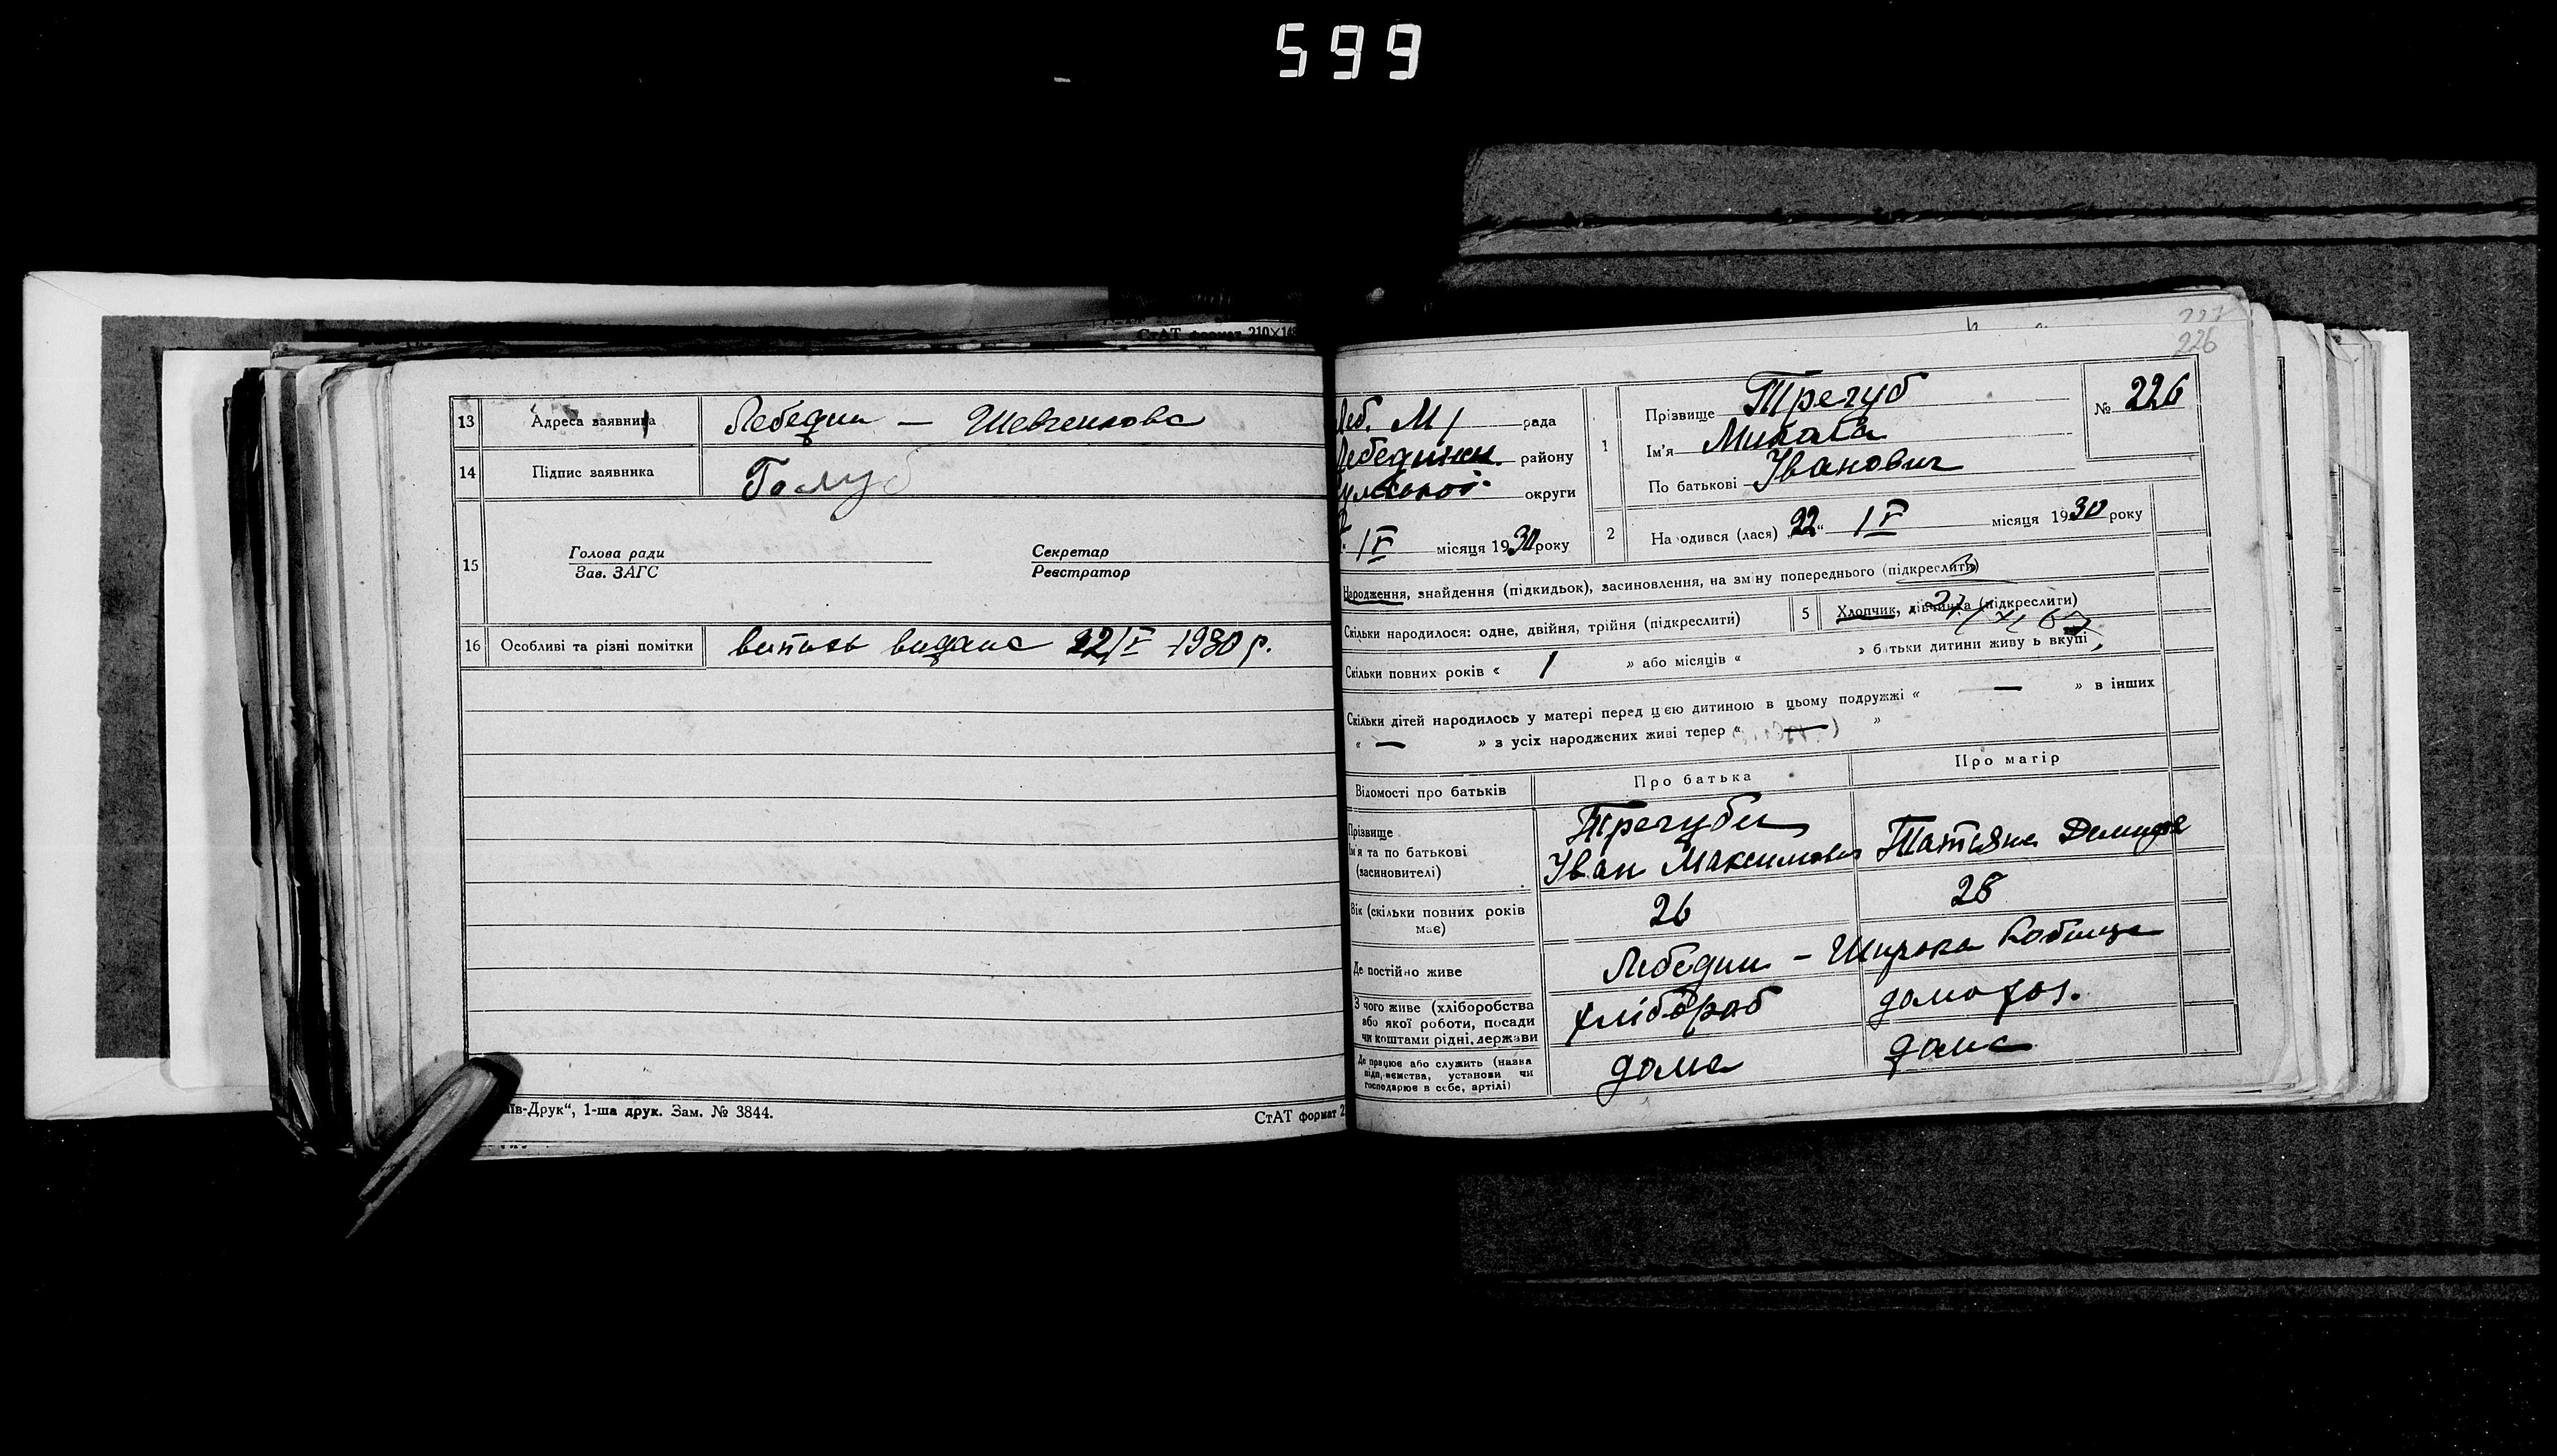 599
СтАТ формат 210×148
13 Адреса заявника Лебедин — Шевченкова
14 Підпис заявника Голуб
15 Голова ради Секретар
Зав. ЗАГС Реєстратор
16 Особливі та різні помітки випись видана 22/IV 1930 р.
їв-Друк“, 1-ша друк. Зам. № 3844. СтАТ формат 2
226
Леб. М/ рада
Лебединськ. району
округи
IV місяця 1930 року
1 Прізвище Трегуб
Ім'я Микола
По батькові Іванович
№ 226
2 Народився (лася) „22“ IV місяця 1930 року
Народження, знайдення (підкидьок), засиновлення, на зміну попереднього (підкреслити)
Скільки народилося: одне, двійня, трійня (підкреслити) 5 Хлопчик, дівчинка (підкреслити)
Скільки повних років « 1 » або місяців « » батьки дитини живуть вкупі
Скільки дітей народилось у матері перед цією дитиною в цьому подружжі « — » в інших
« — » з усіх народжених живі тепер « — »
Відомості про батьків Про батька Про матір
Прізвище Трегуби
Ім'я та по батькові Іван Максимович Татіяна Демидов
(засиновителі)
Вік (скільки повних років має) 26 28
Де постійно живе Лебедин – Широка
З чого живе (хліборобства хлібороб домохоз.
або якої роботи, посади
чи коштами рідні, держави
Де працює або служить (назва дома дома
підприємства, установи чи
господарює в себе, артілі)